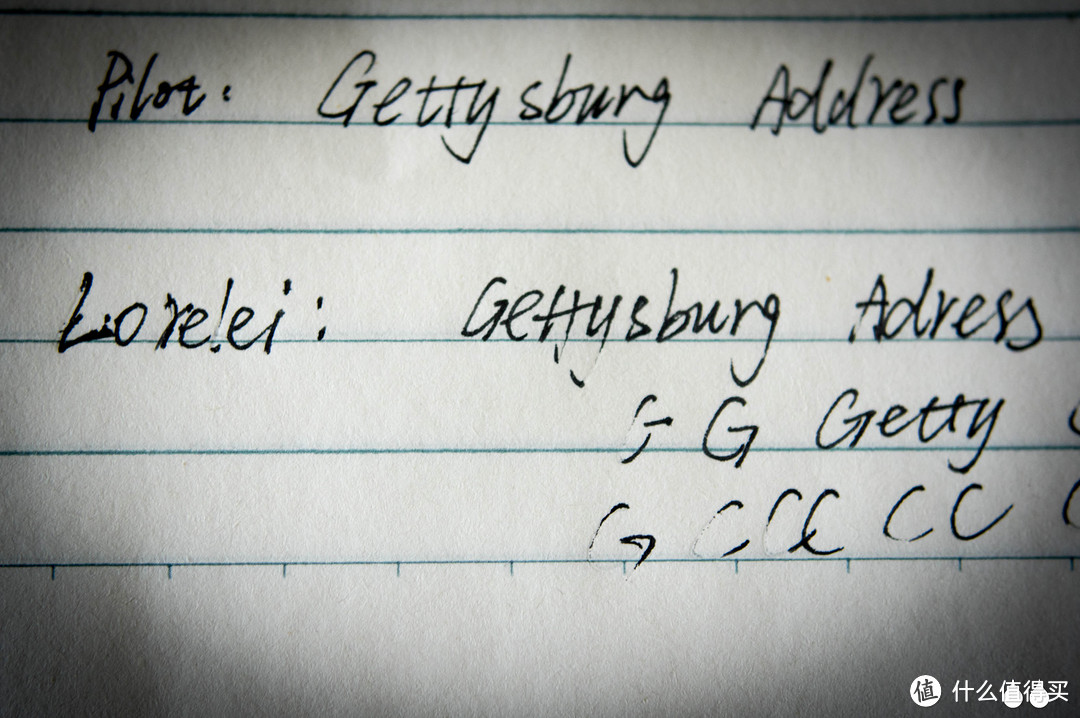 Pilot: Gettysburg Address
Lorelei: Gettysburg Adress
G G Getty
G C C C C C
值 什么值得买